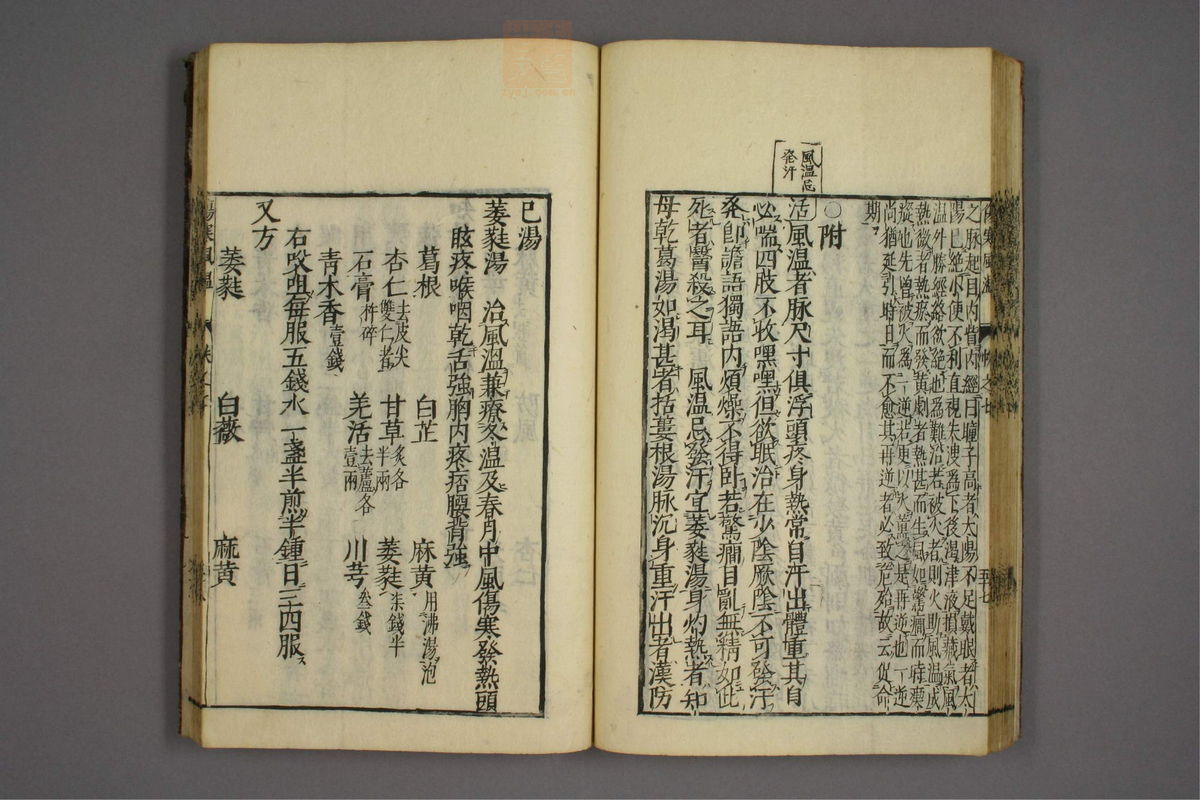 風溫忌
發汗
之脉起目内眥内經曰瞳子高者太陽不足戴眼者太
陽已絶小便不利直視失溲爲下後渴津液損藏氣風
温外勝經絡欲絶也爲難治若被火者則火助風温成
熱微者熱瘀而發黄劇者熱甚而生風如驚癇而時瘈
瘲也先曾被火爲一逆若更以火熏之是再逆也一逆
尚猶延引時日而不愈其再逆者必致危殆故云促命
期
○附
活風溫者脉尺寸俱浮頭疼身熱常自汗出體重其息
必喘四肢不收嘿嘿但欲眠治在少陰厥陰不可發汗
発卽譫語獨語内煩燥不得卧若驚癇目亂無精如此
死者醫殺之耳 風溫忌發汗宜萎蕤湯身灼熱者知
母乾葛湯如渴甚者括蔞根湯脉沉身重汗出者漢防
巳湯
萎蕤湯 治風溫兼療冬溫及春月中風傷寒發熱頭
眩疼喉咽乾舌強胸内疼痞腰背強
葛根 白芷 麻黄用沸湯泡
杏仁去皮尖雙仁者 甘草炙各半兩 萎蕤柒錢半
石膏杵碎 羌活去蘆各壹兩 川芎叁錢
青木香壹錢
右㕮咀每服五錢水一盞半煎半鍾日三四服
又方
萎蕤 白薇 麻黄